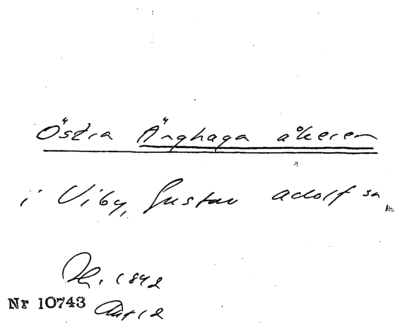 Östra Änghaga åkeren
i Viby, Gustav Adolf sn
1842
Nr 10743